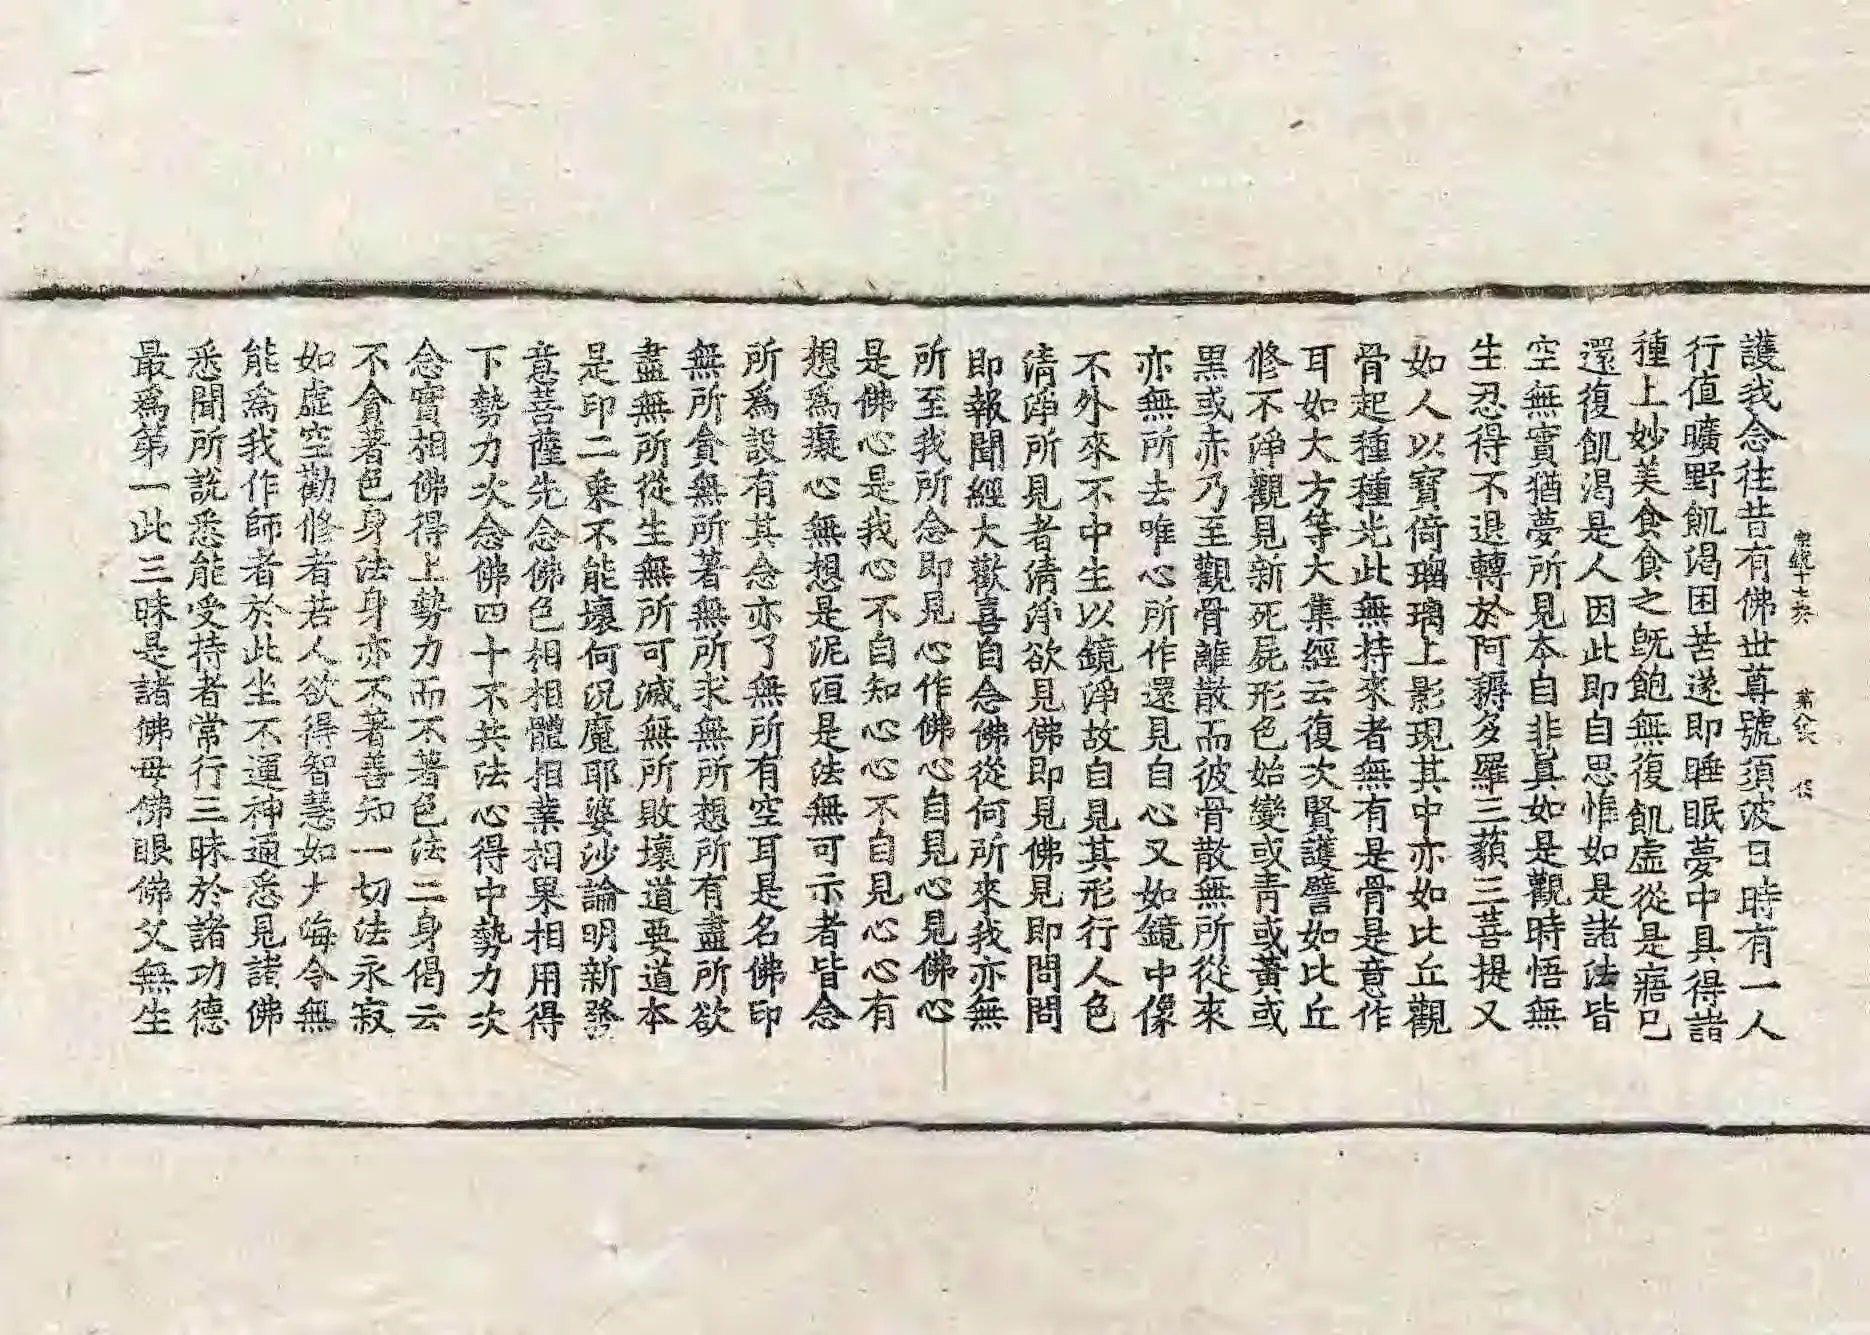 護我念往昔有佛世尊號須波日時有一人
行值曠野飢渴困苦遂即睡眠夢中具得諸
種上妙美食食之旣飽無復飢虛從是寤已
還復飢渴是人因此即自思惟如是諸法皆
空無實猶夢所見本自非眞如是觀時悟無
生忍得不退轉於阿耨多羅三藐三菩提又
如人以寶倚瑠璃上影現其中亦如比丘觀
骨起種種光此無持來者無有是骨是意作
耳如大方等大集經云復次賢護譬如比丘
修不淨觀見新死屍形色始變或青或黃或
黑或赤乃至觀骨離散而彼骨散無所從來
亦無所去唯心所作還見自心又如鏡中像
不外來不中生以鏡淨故自見其形行人色
清淨所見者清淨欲見佛即見佛見即問問
即報聞經大歡喜自念佛從何所來我亦無
所至我所念即見心作佛心自見心見佛心
是佛心是我心不自知心心不自見心心有
想爲癡心無想是泥洹是法無可示者皆念
所爲設有其念亦了無所有空耳是名佛印
無所貪無所著無所求無所想所有盡所欲
盡無所從生無所可滅無所敗壞道要道本
是印二乘不能壞何況魔耶婆沙論明新發
意菩薩先念佛色相相體相業相果相用得
下勢力次念佛四十不共法心得中勢力次
念實相佛得上勢力而不著色法二身偈云
不貪著色身法身亦不著善知一切法永寂
如虛空勸修者若人欲得智慧如大海令無
能爲我作師者於此坐不運神通悉見諸佛
悉聞所說悉能受持者常行三昧於諸功德
最爲第一此三昧是諸佛母佛眼佛父無生